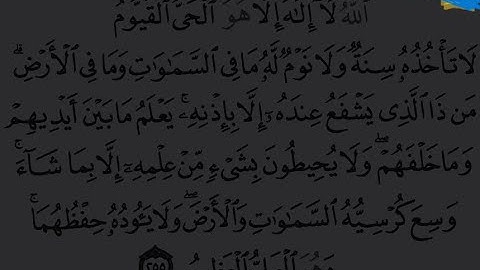 ٱللَّهُ لَآ إِلَٰهَ إِلَّا هُوَ ٱلْحَىُّ ٱلْقَيُّومُ
لَا تَأْخُذُهُۥ سِنَةٌ وَلَا نَوْمٌ لَّهُۥ مَا فِى ٱلسَّمَٰوَٰتِ وَمَا فِى ٱلْأَرْضِ ۗ
مَن ذَا ٱلَّذِى يَشْفَعُ عِندَهُۥٓ إِلَّا بِإِذْنِهِۦ ۚ يَعْلَمُ مَا بَيْنَ أَيْدِيهِمْ
وَمَا خَلْفَهُمْ ۖ وَلَا يُحِيطُونَ بِشَىْءٍ مِّنْ عِلْمِهِۦٓ إِلَّا بِمَا شَآءَ ۚ
وَسِعَ كُرْسِيُّهُ ٱلسَّمَٰوَٰتِ وَٱلْأَرْضَ ۖ وَلَا يَـُٔودُهُۥ حِفْظُهُمَا ۚ
وَهُوَ ٱلْعَلِىُّ ٱلْعَظِيمُ ٢٥٥